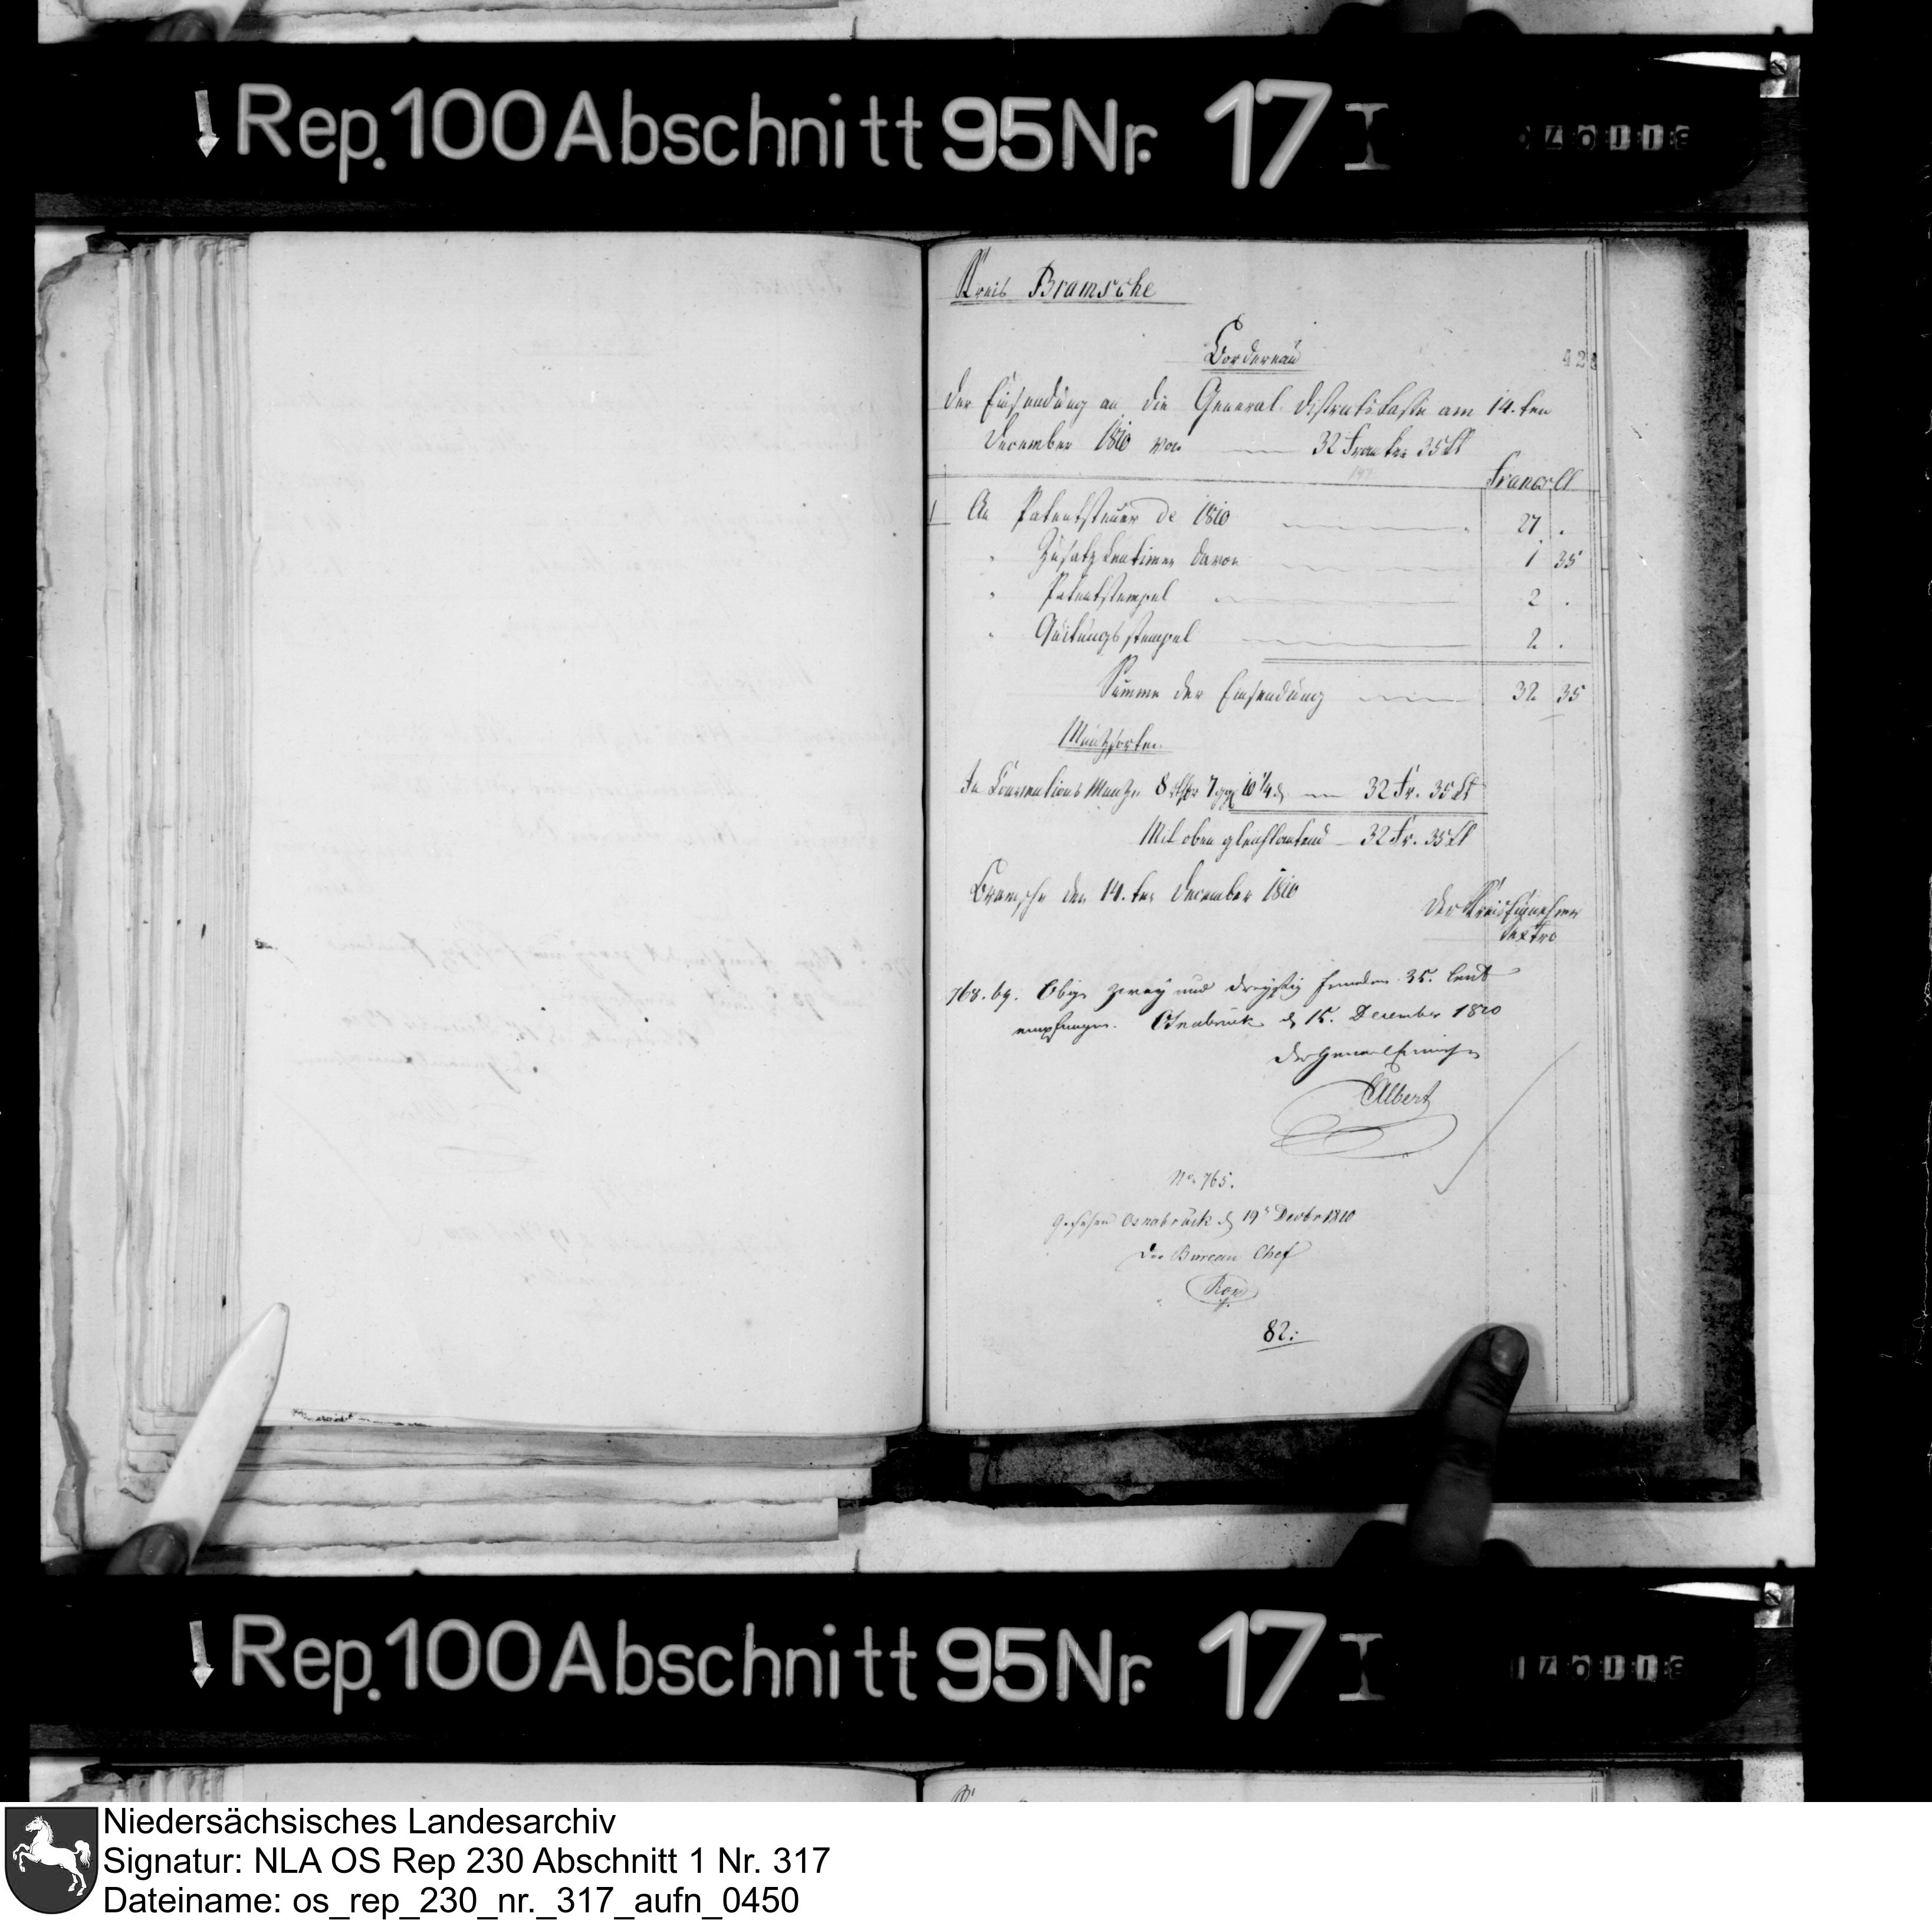 Rep. 100 Abschnitt 95 Nr. 17 I
Kreis Bramsche
Bordereau
der Einsendung an die General Distrikts Casse am 14. ten
December 1810 von 32 Franken 35 Ct
Francs Ct
1 An Patentsteuer de 1810 27 .
" Zusatz Centimen davon 1 35
" Patentstempel 2 .
" Quitungsstempel 2 .
Summe der Einsendung 32 35
Müntzsorten
In Conventions Muntze 8 rthlr 7 ggr 10 1/4 d 32 Fr. 35 Ct
Mit oben gleichlautend 32 Fr. 35 Ct
Bramsche den 14. ten December 1810
Der Kreis Einnehmer
Sextro
768. 69. Obige zwey und dreyßig Franken 35. Cent
empfangen. Osnabrück d 15. December 1810
Der General Einnehmer
Albert
No. 765.
Gesehen Osnabrück d 19 Decbr 1810
Der Bureau Chef
82.
Rep. 100 Abschnitt 95 Nr. 17 I
Niedersächsisches Landesarchiv
Signatur: NLA OS Rep 230 Abschnitt 1 Nr. 317
Dateiname: os_rep_230_nr._317_aufn_0450